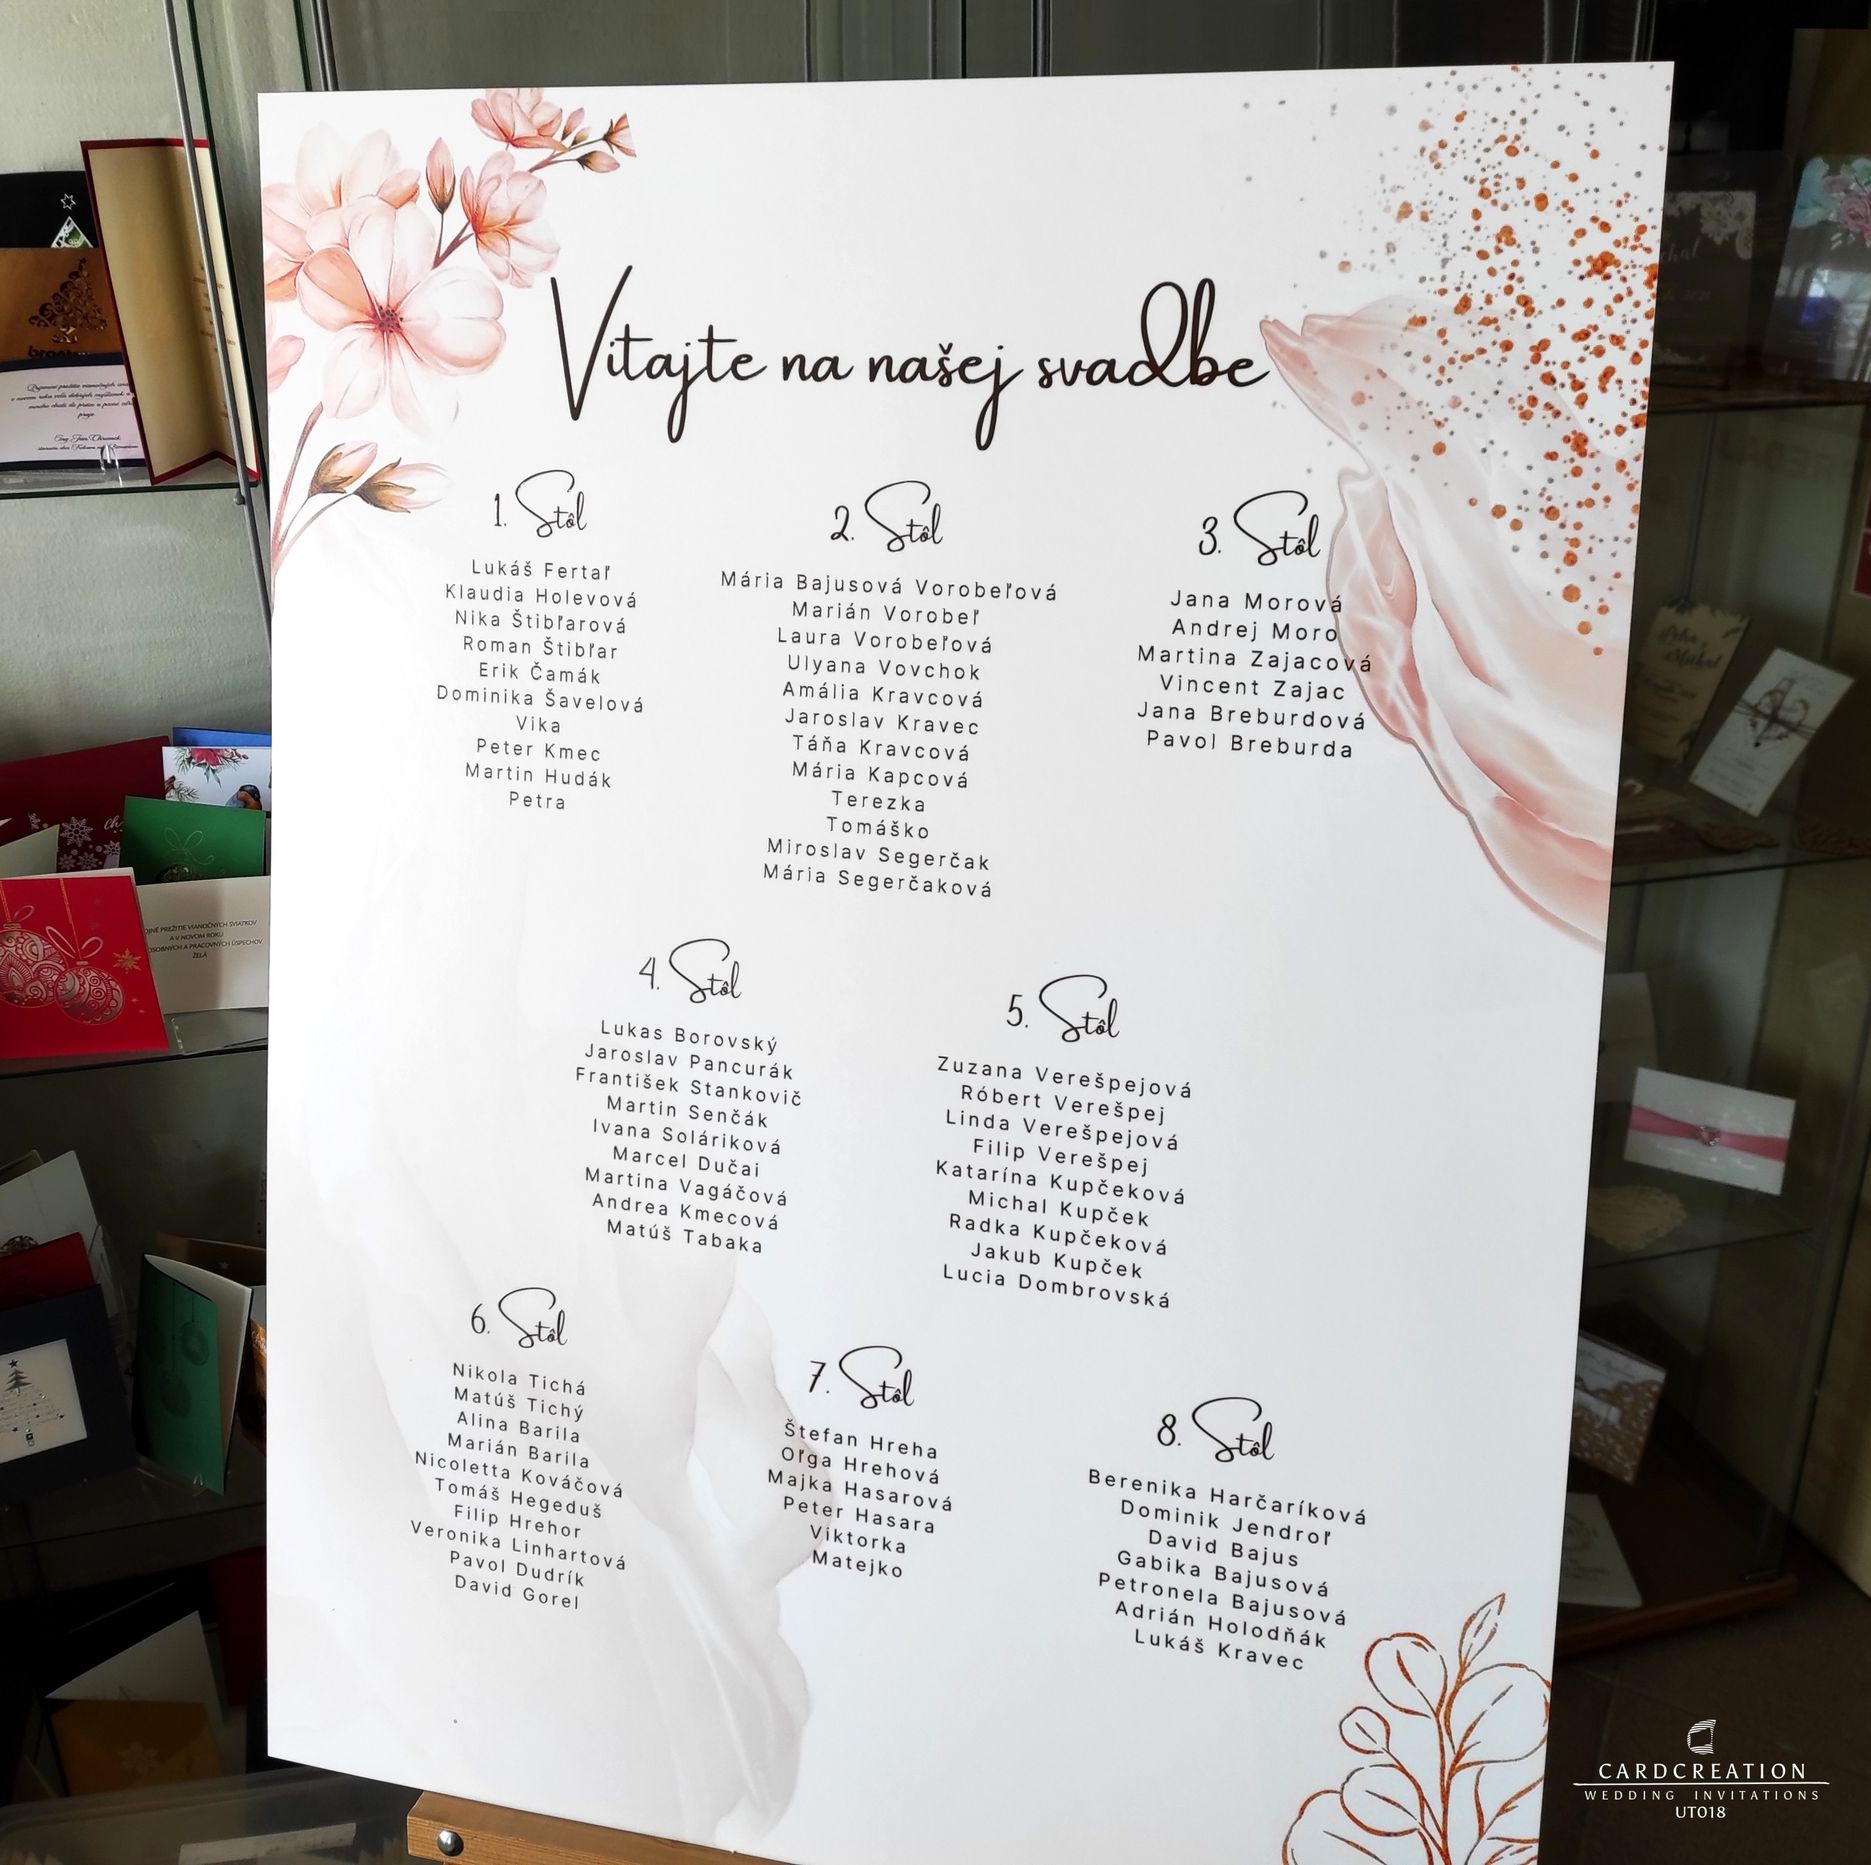 Vitajte na našej svadbe
1. Stôl
Lukáš Fertaľ
Klaudia Holevová
Nika Štibľarová
Roman Štibľar
Erik Čamák
Dominika Šavelová
Vika
Peter Kmec
Martin Hudák
Petra
2. Stôl
Mária Bajusová Vorobeľová
Marián Vorobeľ
Laura Vorobeľová
Ulyana Vovchok
Amália Kravcová
Jaroslav Kravec
Táňa Kravcová
Mária Kapcová
Terezka
Tomáško
Miroslav Segerčak
Mária Segerčaková
3. Stôl
Jana Morová
Andrej Moro
Martina Zajacová
Vincent Zajac
Jana Breburdová
Pavol Breburda
4. Stôl
Lukas Borovský
Jaroslav Pancurák
František Stankovič
Martin Senčák
Ivana Soláriková
Marcel Dučai
Martina Vagáčová
Andrea Kmecová
Matúš Tabaka
5. Stôl
Zuzana Verešpejová
Róbert Verešpej
Linda Verešpejová
Filip Verešpej
Katarína Kupčeková
Michal Kupček
Radka Kupčeková
Jakub Kupček
Lucia Dombrovská
6. Stôl
Nikola Tichá
Matúš Tichý
Alina Barila
Marián Barila
Nicoletta Kováčová
Tomáš Hegeduš
Filip Hrehor
Veronika Linhartová
Pavol Dudrík
David Gorel
7. Stôl
Štefan Hreha
Oľga Hrehová
Majka Hasarová
Peter Hasara
Viktorka
Matejko
8. Stôl
Berenika Harčaríková
Dominik Jendroľ
David Bajus
Gabika Bajusová
Petronela Bajusová
Adrián Holodňák
Lukáš Kravec
PREŽITIE VIANOČNÝCH SVIATKOV
A V NOVOM ROKU
OSOBNÝCH A PRACOVNÝCH ÚSPECHOV
ŽELÁ
CARDCREATION
WEDDING INVITATIONS
UT018